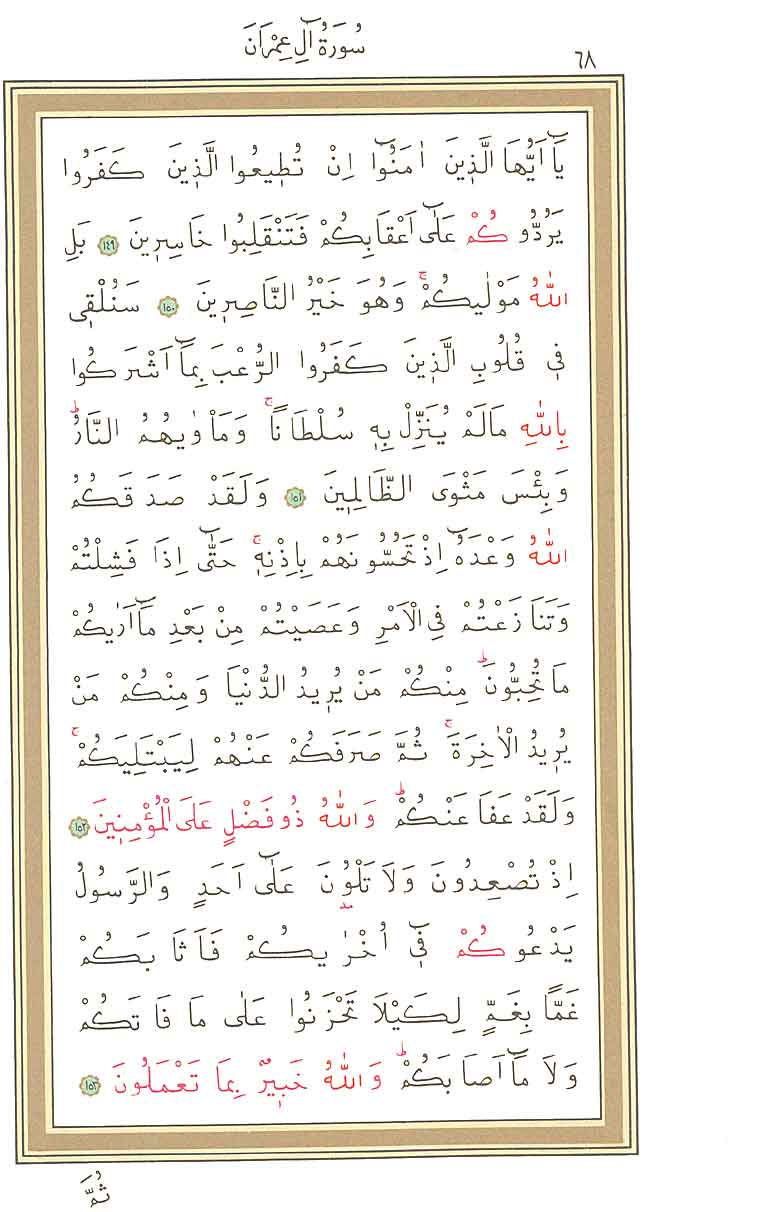 سُورَةُ اٰلِ عِمْرَانَ
٦٨
يَٓا اَيُّهَا الَّذ۪ينَ اٰمَنُٓوا اِنْ تُط۪يعُوا الَّذ۪ينَ كَفَرُوا
يَرُدُّو كُمْ عَلٰٓى اَعْقَابِكُمْ فَتَنْقَلِبُوا خَاسِر۪ينَ ١٤٩ بَلِ
اللّٰهُ مَوْلٰيكُمْۚ وَهُوَ خَيْرُ النَّاصِر۪ينَ ١٥٠ سَنُلْق۪ي
ف۪ي قُلُوبِ الَّذ۪ينَ كَفَرُوا الرُّعْبَ بِمَٓا اَشْرَكُوا
بِاللّٰهِ مَالَمْ يُنَزِّلْ بِه۪ سُلْطَانًاۚ وَمَاْوٰيهُمُ النَّارُۜ
وَبِئْسَ مَثْوَى الظَّالِم۪ينَ ١٥١ وَلَقَدْ صَدَقَكُمُ
اللّٰهُ وَعْدَهُٓ اِذْ تَحُسُّونَهُمْ بِاِذْنِه۪ۚ حَتّٰٓى اِذَا فَشِلْتُمْ
وَتَنَازَعْتُمْ فِي الْاَمْرِ وَعَصَيْتُمْ مِنْ بَعْدِ مَٓا اَرٰيكُمْ
مَا تُحِبُّونَۜ مِنْكُمْ مَنْ يُر۪يدُ الدُّنْيَا وَمِنْكُمْ مَنْ
يُر۪يدُ الْاٰخِرَةَۚ ثُمَّ صَرَفَكُمْ عَنْهُمْ لِيَبْتَلِيَكُمْۚ
وَلَقَدْ عَفَا عَنْكُمْۜ وَاللّٰهُ ذُو فَضْلٍ عَلَى الْمُؤْمِن۪ينَ ١٥٢
اِذْ تُصْعِدُونَ وَلَا تَلْوُ۫نَ عَلٰٓى اَحَدٍ وَالرَّسُولُ
يَدْعُو كُمْ ف۪ٓي اُخْرٰيكُمْ فَاَثَابَكُمْ
غَمًّا بِغَمٍّ لِكَيْلَا تَحْزَنُوا عَلٰى مَا فَاتَكُمْ
وَلَا مَٓا اَصَابَكُمْۜ وَاللّٰهُ خَب۪يرٌ بِمَا تَعْمَلُونَ ١٥٣
ثُمَّ